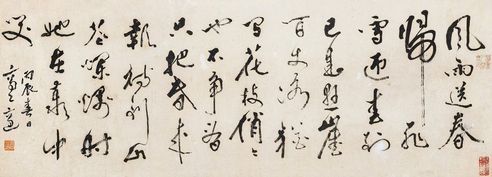 風雨送春
歸飛
雪迎春到
已是懸崖
百丈冰猶
有花枝俏々
也不争春
只把春来
報待到山
花爛熳时
她在丛中
笑
丙辰春日
高二適